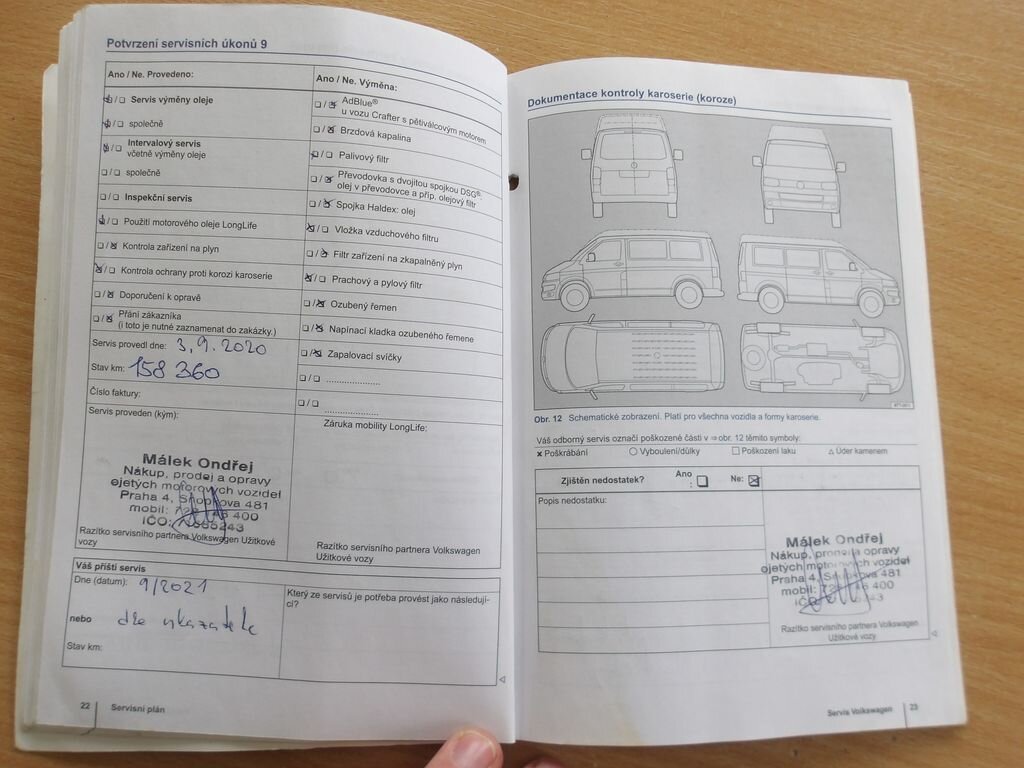 Potvrzení servisních úkonů 9
Ano / Ne. Provedeno:
Servis výměny oleje
společně
Intervalový servis
včetně výměny oleje
společně
Inspekční servis
Použití motorového oleje LongLife
Kontrola zařízení na plyn
Kontrola ochrany proti korozi karoserie
Doporučení k opravě
Přání zákazníka
(i toto je nutné zaznamenat do zakázky.)
Servis provedl dne: 3.9.2020
Stav km: 158 360
Číslo faktury:
Servis proveden (kým):
Málek Ondřej
Nákup, prodej a opravy
ojetých motorových vozidel
Praha 4, 481
mobil: 400
IČO:
Razítko servisního partnera Volkswagen Užitkové
vozy
Ano / Ne. Výměna:
AdBlue®
u vozu Crafter s pětiválcovým motorem
Brzdová kapalina
Palivový filtr
Převodovka s dvojitou spojkou DSG®:
olej v převodovce a příp. olejový filtr
Spojka Haldex: olej
Vložka vzduchového filtru
Filtr zařízení na zkapalněný plyn
Prachový a pylový filtr
Ozubený řemen
Napínací kladka ozubeného řemene
Zapalovací svíčky
Záruka mobility LongLife:
Razítko servisního partnera Volkswagen
Užitkové vozy
Váš příští servis
Dne (datum): 9/2021
nebo dle ukazatele
Stav km:
Který ze servisů je potřeba provést jako následují-
cí?
22 Servisní plán
Dokumentace kontroly karoserie (koroze)
Obr. 12 Schematické zobrazení. Platí pro všechna vozidla a formy karoserie.
Váš odborný servis označí poškozené části v ⇒ obr. 12 těmito symboly:
× Poškrábání ○ Vyboulení/důlky □ Poškození laku △ Úder kamenem
Zjištěn nedostatek? Ano : Ne:
Popis nedostatku:
Málek Ondřej
Nákup, prodej a opravy
ojetých motorových vozidel
Praha 4, 481
mobil: 400
Razítko servisního partnera Volkswagen
Užitkové vozy
Servis Volkswagen 23